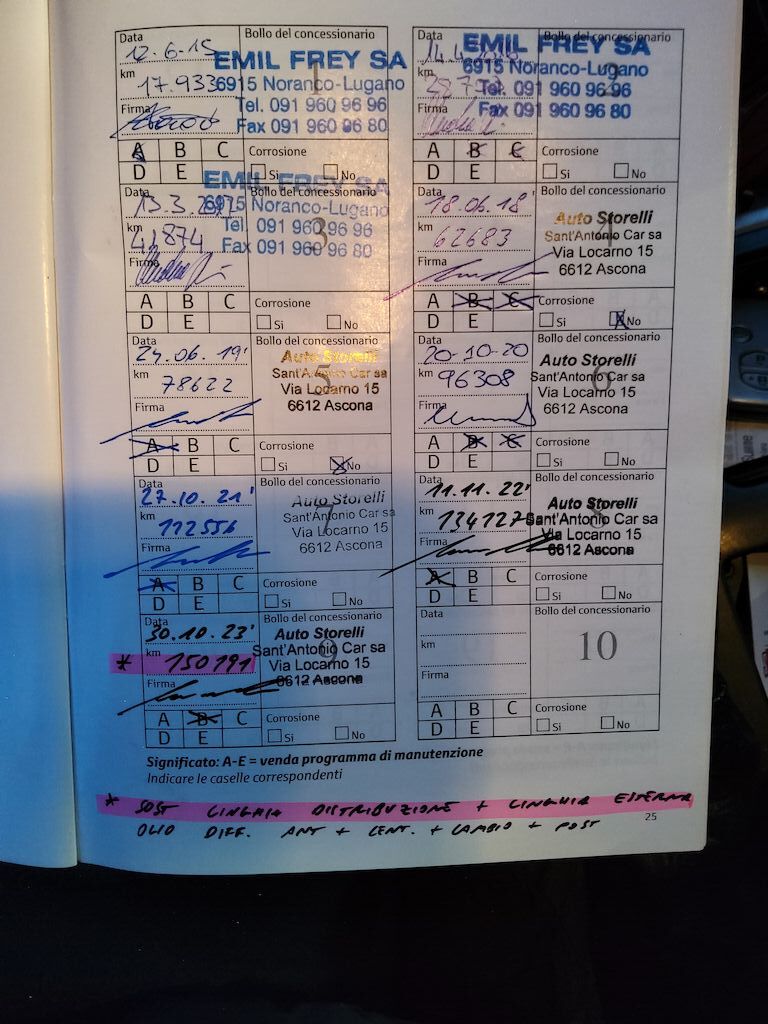 Data
Bollo del concessionario
12.6-15
EMIL FREY SA
km
17.933
6915 Noranco-Lugano
1
Tel. 091 960 96 96
Firma
Fax 091 960 96 80
A B C
Corrosione
D E
Si No
Data
Bollo del concessionario
EMIL FREY SA
km
6915 Noranco-Lugano
2
Tel. 091 960 96 96
Firma
Fax 091 960 96 80
A B C
Corrosione
D E
Si No
Data
Bollo del concessionario
13.3.
EMIL FREY SA
6915 Noranco-Lugano
km
41874
Tel. 091 960 96 96
3
Firma
Fax 091 960 96 80
A B C
Corrosione
D E
Si No
Data
Bollo del concessionario
18.06.18'
Auto Storelli
km
62683
Sant'Antonio Car sa
4
Via Locarno 15
Firma
6612 Ascona
A B C
Corrosione
D E
Si No
Data
Bollo del concessionario
24.06.19'
Auto Storelli
km
78622
Sant'Antonio Car sa
5
Via Locarno 15
Firma
6612 Ascona
A B C
Corrosione
D E
Si No
Data
Bollo del concessionario
20-10-20
Auto Storelli
km
96308
Sant'Antonio Car sa
6
Via Locarno 15
Firma
6612 Ascona
A B C
Corrosione
D E
Si No
Data
Bollo del concessionario
27.10.21'
Auto Storelli
km
112556
Sant'Antonio Car sa
7
Via Locarno 15
Firma
6612 Ascona
A B C
Corrosione
D E
Si No
Data
Bollo del concessionario
11.11.22'
Auto Storelli
km
134127
Sant'Antonio Car sa
8
Via Locarno 15
Firma
6612 Ascona
A B C
Corrosione
D E
Si No
Data
Bollo del concessionario
30.10.23'
Auto Storelli
* km
150191
Sant'Antonio Car sa
9
Via Locarno 15
Firma
6612 Ascona
A B C
Corrosione
D E
Si No
Data
Bollo del concessionario
km
10
Firma
A B C
Corrosione
D E
Si No
Significato: A-E = venda programma di manutenzione
Indicare le caselle corrispondenti
* SOST CINGHIA DISTRIBUZIONE + CINGHIA ESTERNA
OLIO DIFF. ANT + CENT. + CAMBIO + POST
25